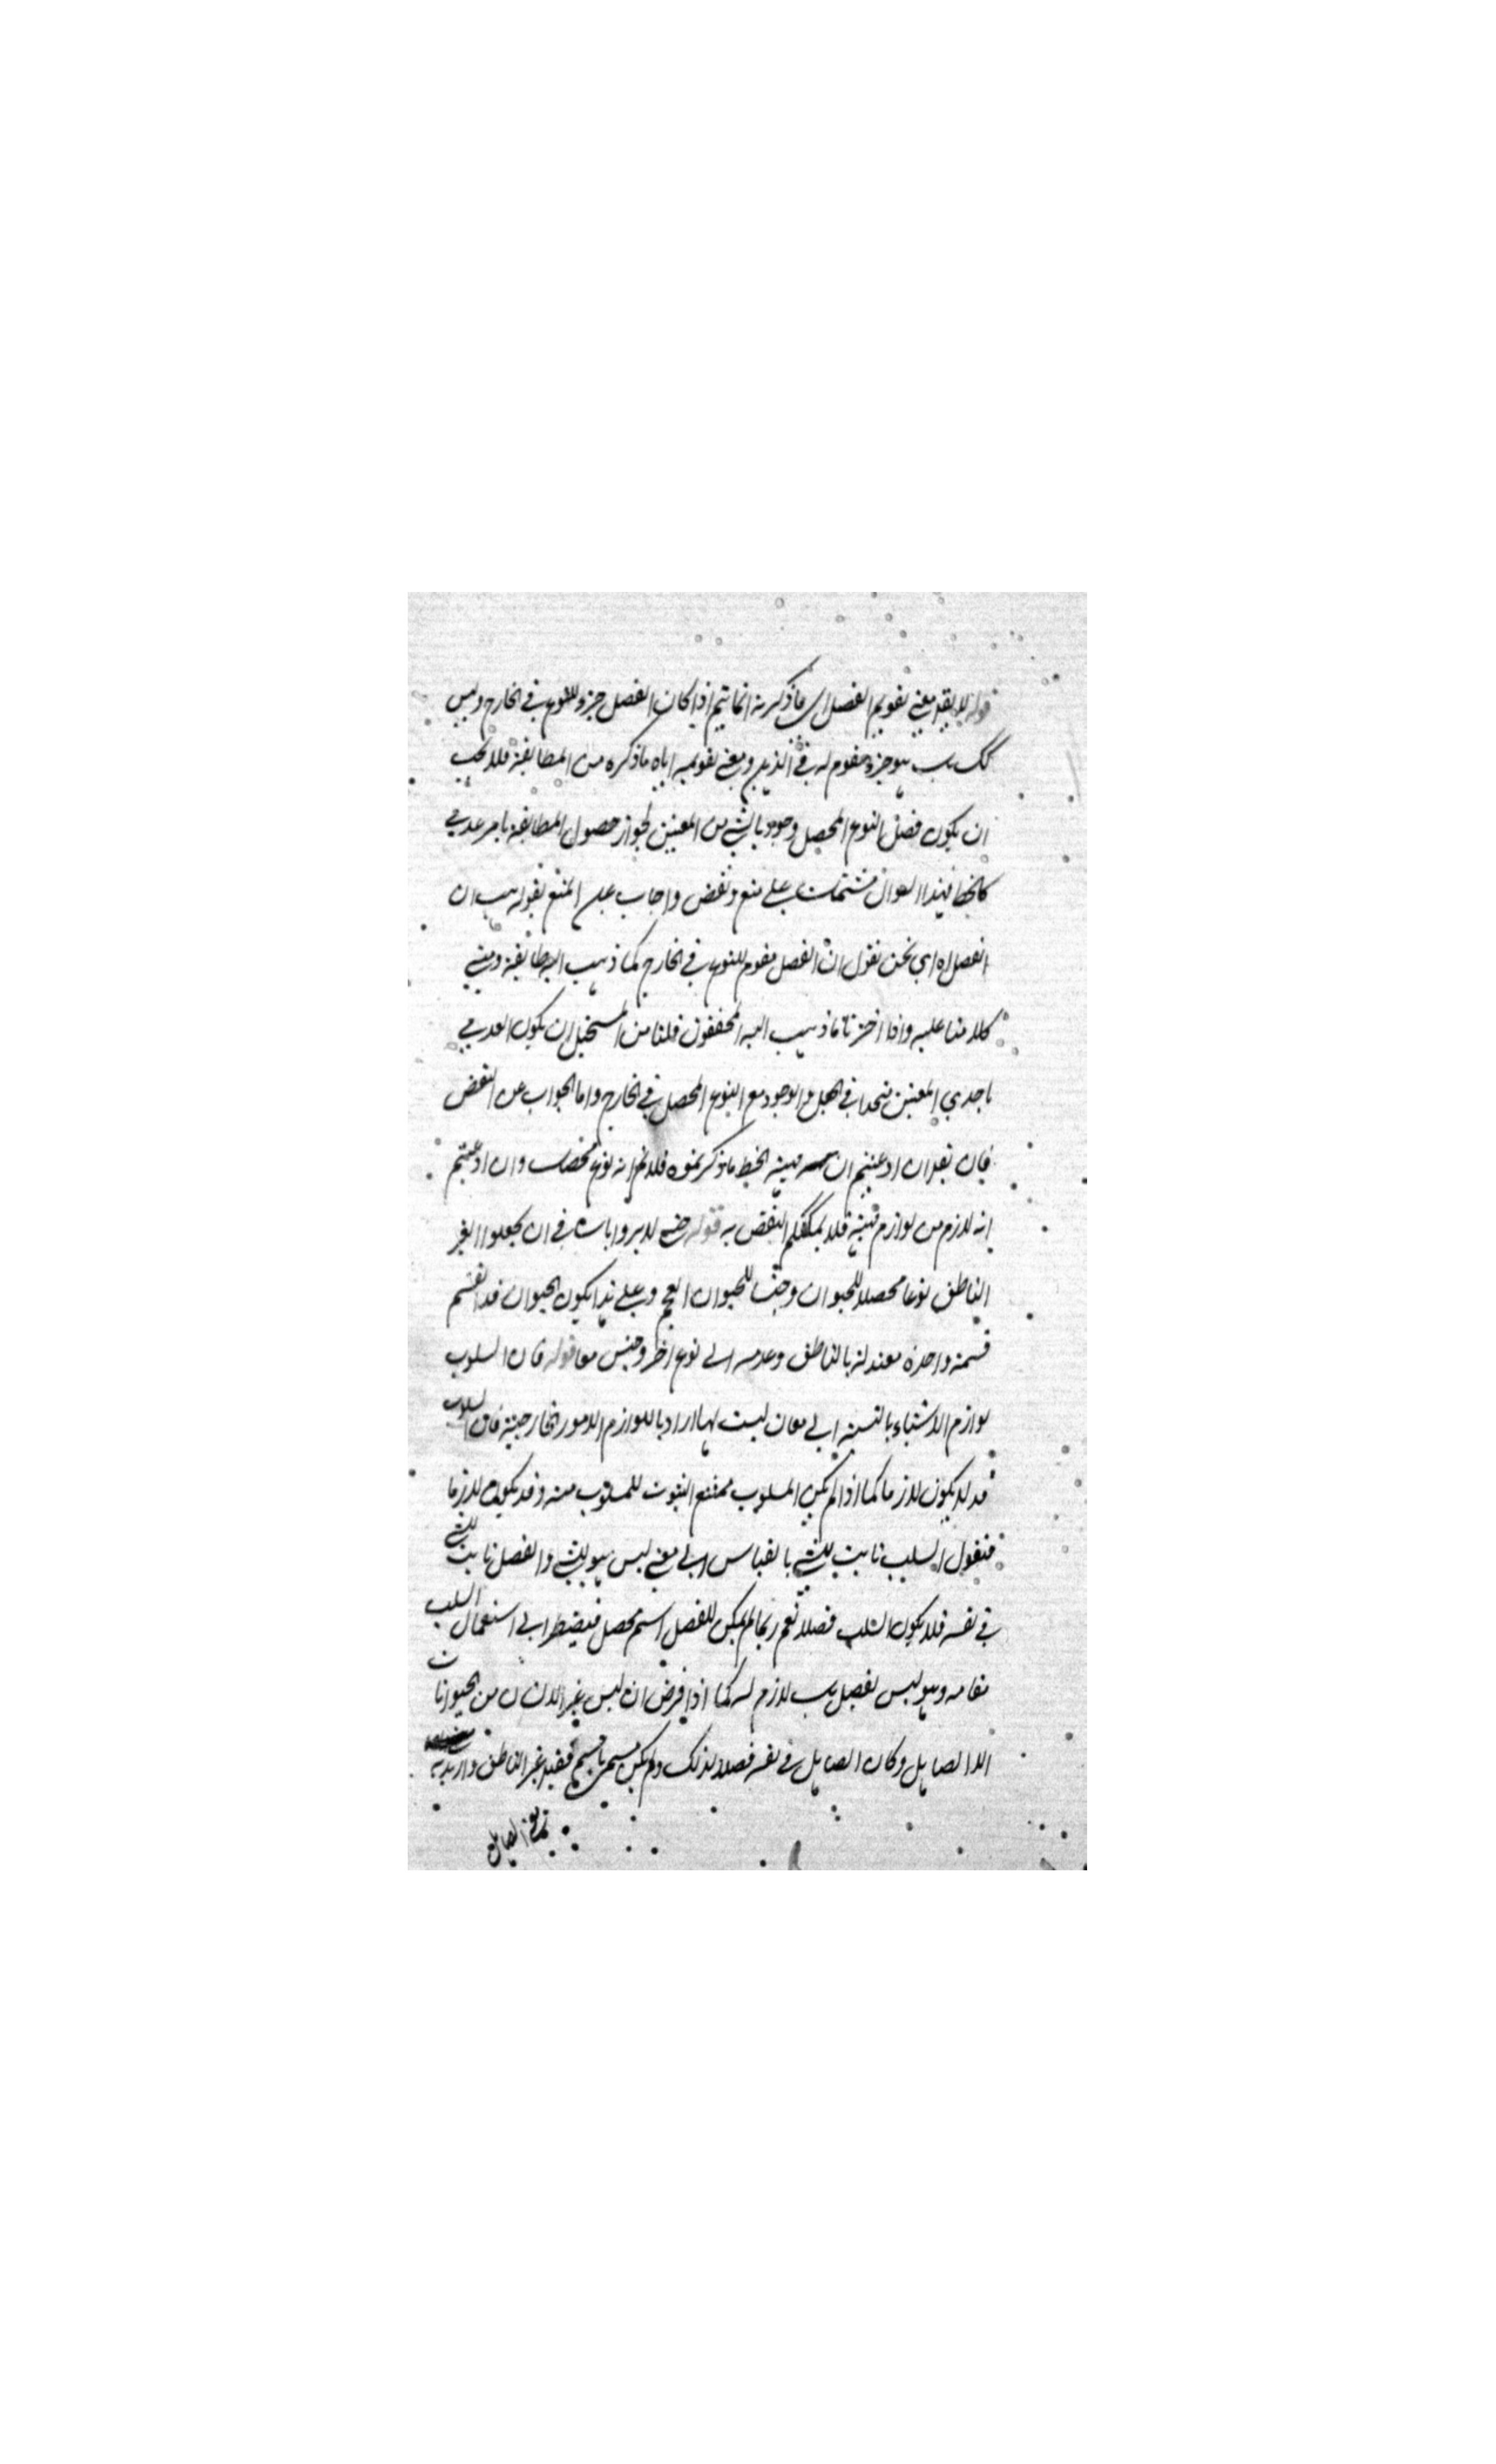 قوله لا يقال معنى تقويم الفصل اى ما ذكرته انما يتم اذا كان الفصل جزء للنوع في الخارج وليس
كك بل هو جزء مقوم له في الذهن ومعنى تقويمه اياه ما ذكره من المطابقة فلا يجب
ان يكون فصل النوع المحصل وجوديا بشئ من المعنيين لجواز حصول المطابقة بامر عدمي
كالخط فهذا السوال مشتمل على منع ونقض واجاب عن المنع بقوله هب ان
الفصل اه اي نحن نقول ان الفصل مقوم للنوع في الخارج كما ذهب اليه طايفة ومبنى
كلامنا عليه واذا اخترنا ما ذهب اليه المحققون قلنا من المستحيل ان يكون العدمي
باحدي المعنيين متحدا في الجعل والوجود مع النوع المحصل في الخارج واما الجواب عن النقض
فبان يقال ان ادعيتم ان مهية الخط ما ذكرتموه فلا نم انه نوع محصل وان ادعيتم
انه لازم من لوازم مهيته فلا يمكنكم النقض به قوله حتى لم يروا باسا في ان يجعلوا الغير
الناطق نوعا محصلا للحيوان وجنسا للحيوان العجم وعلى هذا يكون الحيوان قد انقسم
قسمة واحدة معتدلة بالناطق وعدمه الى نوع اخر وجنس معا قوله فان السلوب
لوازم الاشياء بالنسبة الى معان ليست لها اراد باللوازم الامور الخارجية فان السلوب
قد لا يكون لازما كما اذا لم يكن المسلوب ممتنع الثبوت للمسلوب منه وقد يكون لازما
فنقول السلب ثابت للشئ بالقياس الى معنى ليس هو للشئ والفصل ثابت للشئ
في نفسه فلا يكون السلب فصلا نعم ربما لم يكن للفصل اسم محصل فيضطر الى استعمال السلب
مقامه وهو ليس بفصل بل لازم له كما اذا فرض انه ليس غير الانسان من الحيوانات
الا الصاهل وكان الصاهل في نفسه فصلا لذلك ولم يكن مسمى باسم فقيل غير الناطق واريد به
الصاهل